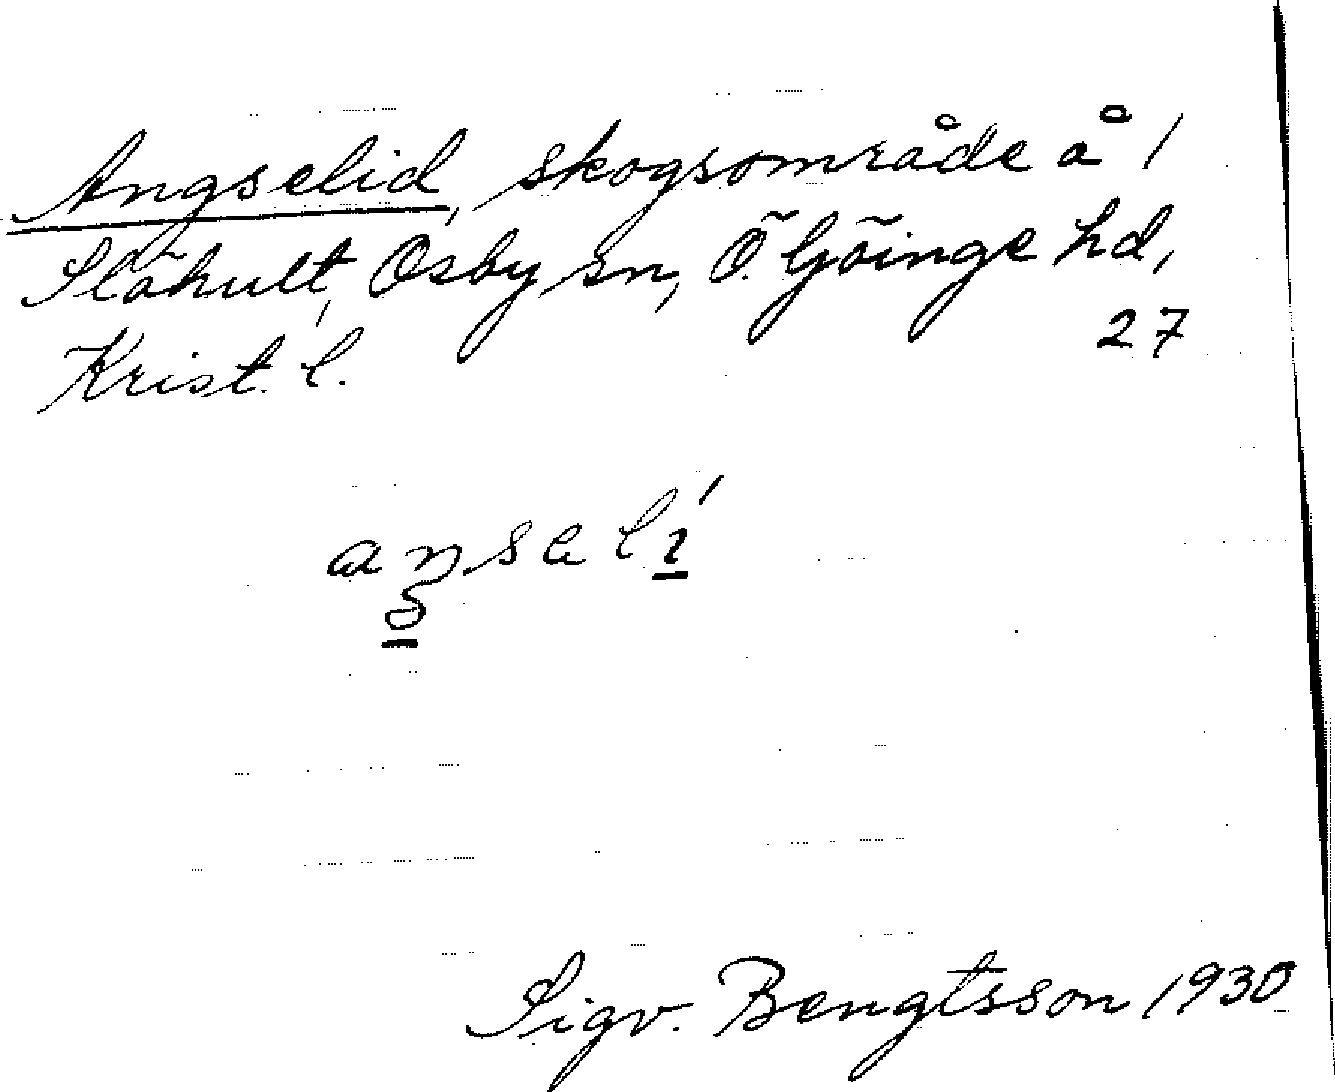 Angselid, skogsområde å 1
Slähult, Osby sn, Ö. Göinge hd,
Krist. l. 27
Sigv. Bengtsson 1930